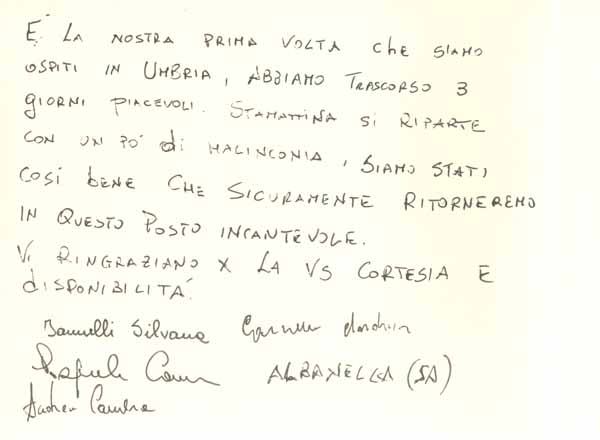 E' LA NOSTRA PRIMA VOLTA che SIAMO
OSPITI IN UMBRIA, ABBIAMO TRASCORSO 3
GIORNI PIACEVOLI. STAMATTINA SI RIPARTE
CON UN PO' di MALINCONIA, SIAMO STATI
COSÌ bENE CHE SICURAMENTE RITORNEREMO
IN QUESTO POSTO INCANTEVOLE.
VI RINGRAZIANO X LA VS CORTESIA E
dISPONIBILITÀ.
Silvana
ALBANELLA (SA)